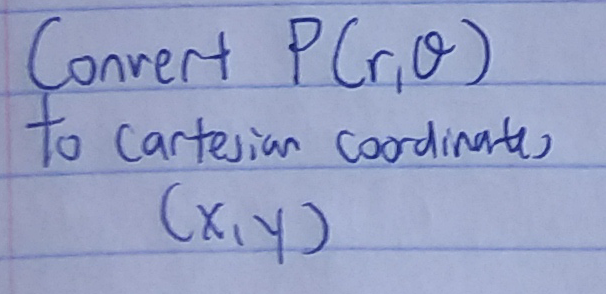 Convert P(r,θ)
to cartesian coordinates
(x,y)